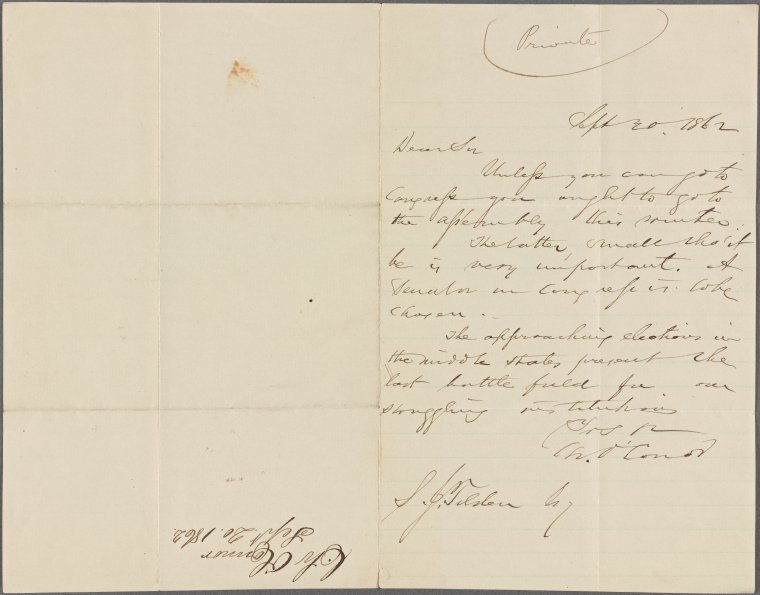 Private
Sept 20. 1862
Dear Sir
Unless you can go to
Congress you ought to go to
the assembly this winter.
The latter, small tho' it
be is very important. A
Senator in Congress is to be
chosen.
The approaching elections in
the middle states present the
last battle field for our
struggling institutions
Yrs &c
Ch. O'Conor
S. J. Tilden Esq
Ch O'Conor
Sept. 20. 1862